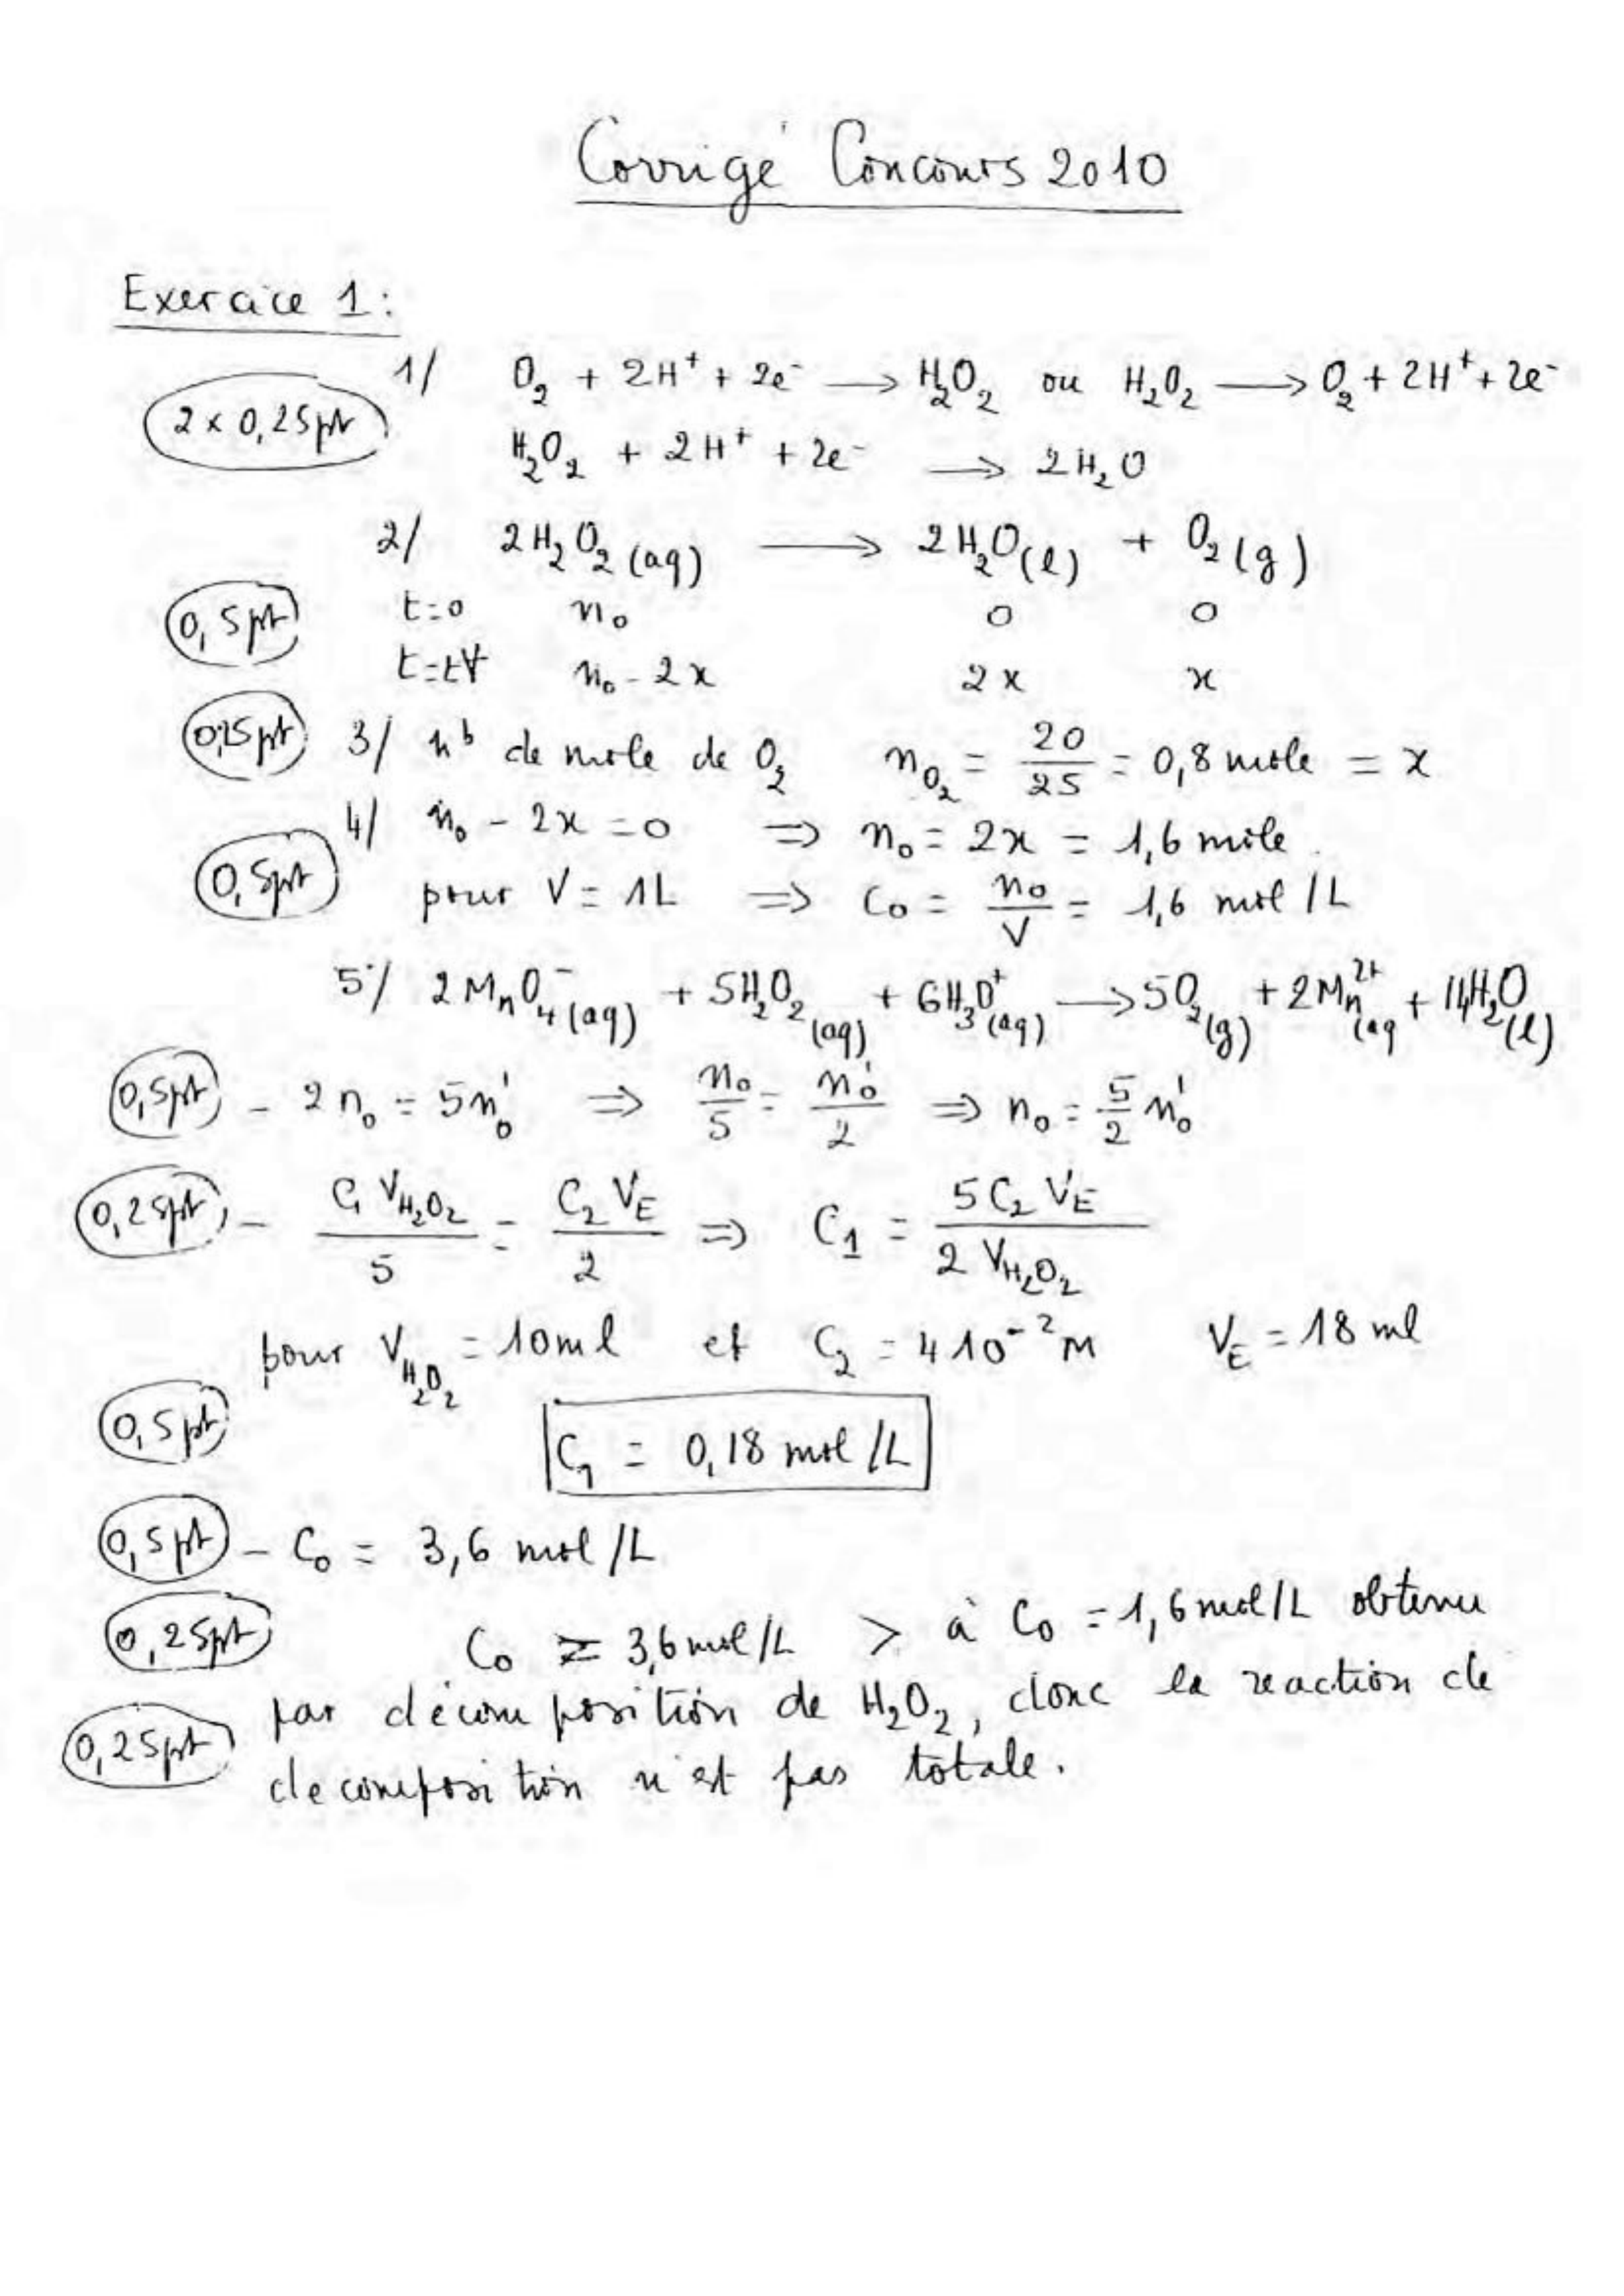 Corrigé Concours 2010
Exercice 1 :
1/ O₂ + 2H⁺ + 2e⁻ → H₂O₂ ou H₂O₂ → O₂ + 2H⁺ + 2e⁻
2 x 0,25pt
H₂O₂ + 2H⁺ + 2e⁻ → 2H₂O
2/ 2H₂O₂(aq) → 2H₂O(l) + O₂(g)
0,5pt t=0 n₀ 0 0
t=t∀ n₀ - 2x 2x x
0,25pt 3/ nb de mole de O₂ n_O₂ = 20/25 = 0,8 mole = x
4/ n₀ - 2x = 0 ⇒ n₀ = 2x = 1,6 mole.
0,5pt pour V = 1L ⇒ C₀ = n₀/V = 1,6 mol/L
5°/ 2MnO₄⁻(aq) + 5H₂O₂(aq) + 6H₃O⁺(aq) → 5O₂(g) + 2Mn²⁺(aq + 14H₂O(l)
0,5pt - 2n₀ = 5n'₀ ⇒ n₀/5 = n'₀/2 ⇒ n₀ = 5/2 n'₀
0,25pt - C₁V_H₂O₂/5 = C₂V_E/2 ⇒ C₁ = 5C₂V_E/2V_H₂O₂
pour V_H₂O₂ = 10ml et C₂ = 4 10⁻² M V_E = 18 ml
0,5pt
C₁ = 0,18 mol/L
0,5pt - C₀ = 3,6 mol/L
0,25pt C₀ = 3,6 mol/L > à C₀ = 1,6 mol/L obtenu
par décomposition de H₂O₂, donc la reaction de
0,25pt decomposition n'est pas totale.